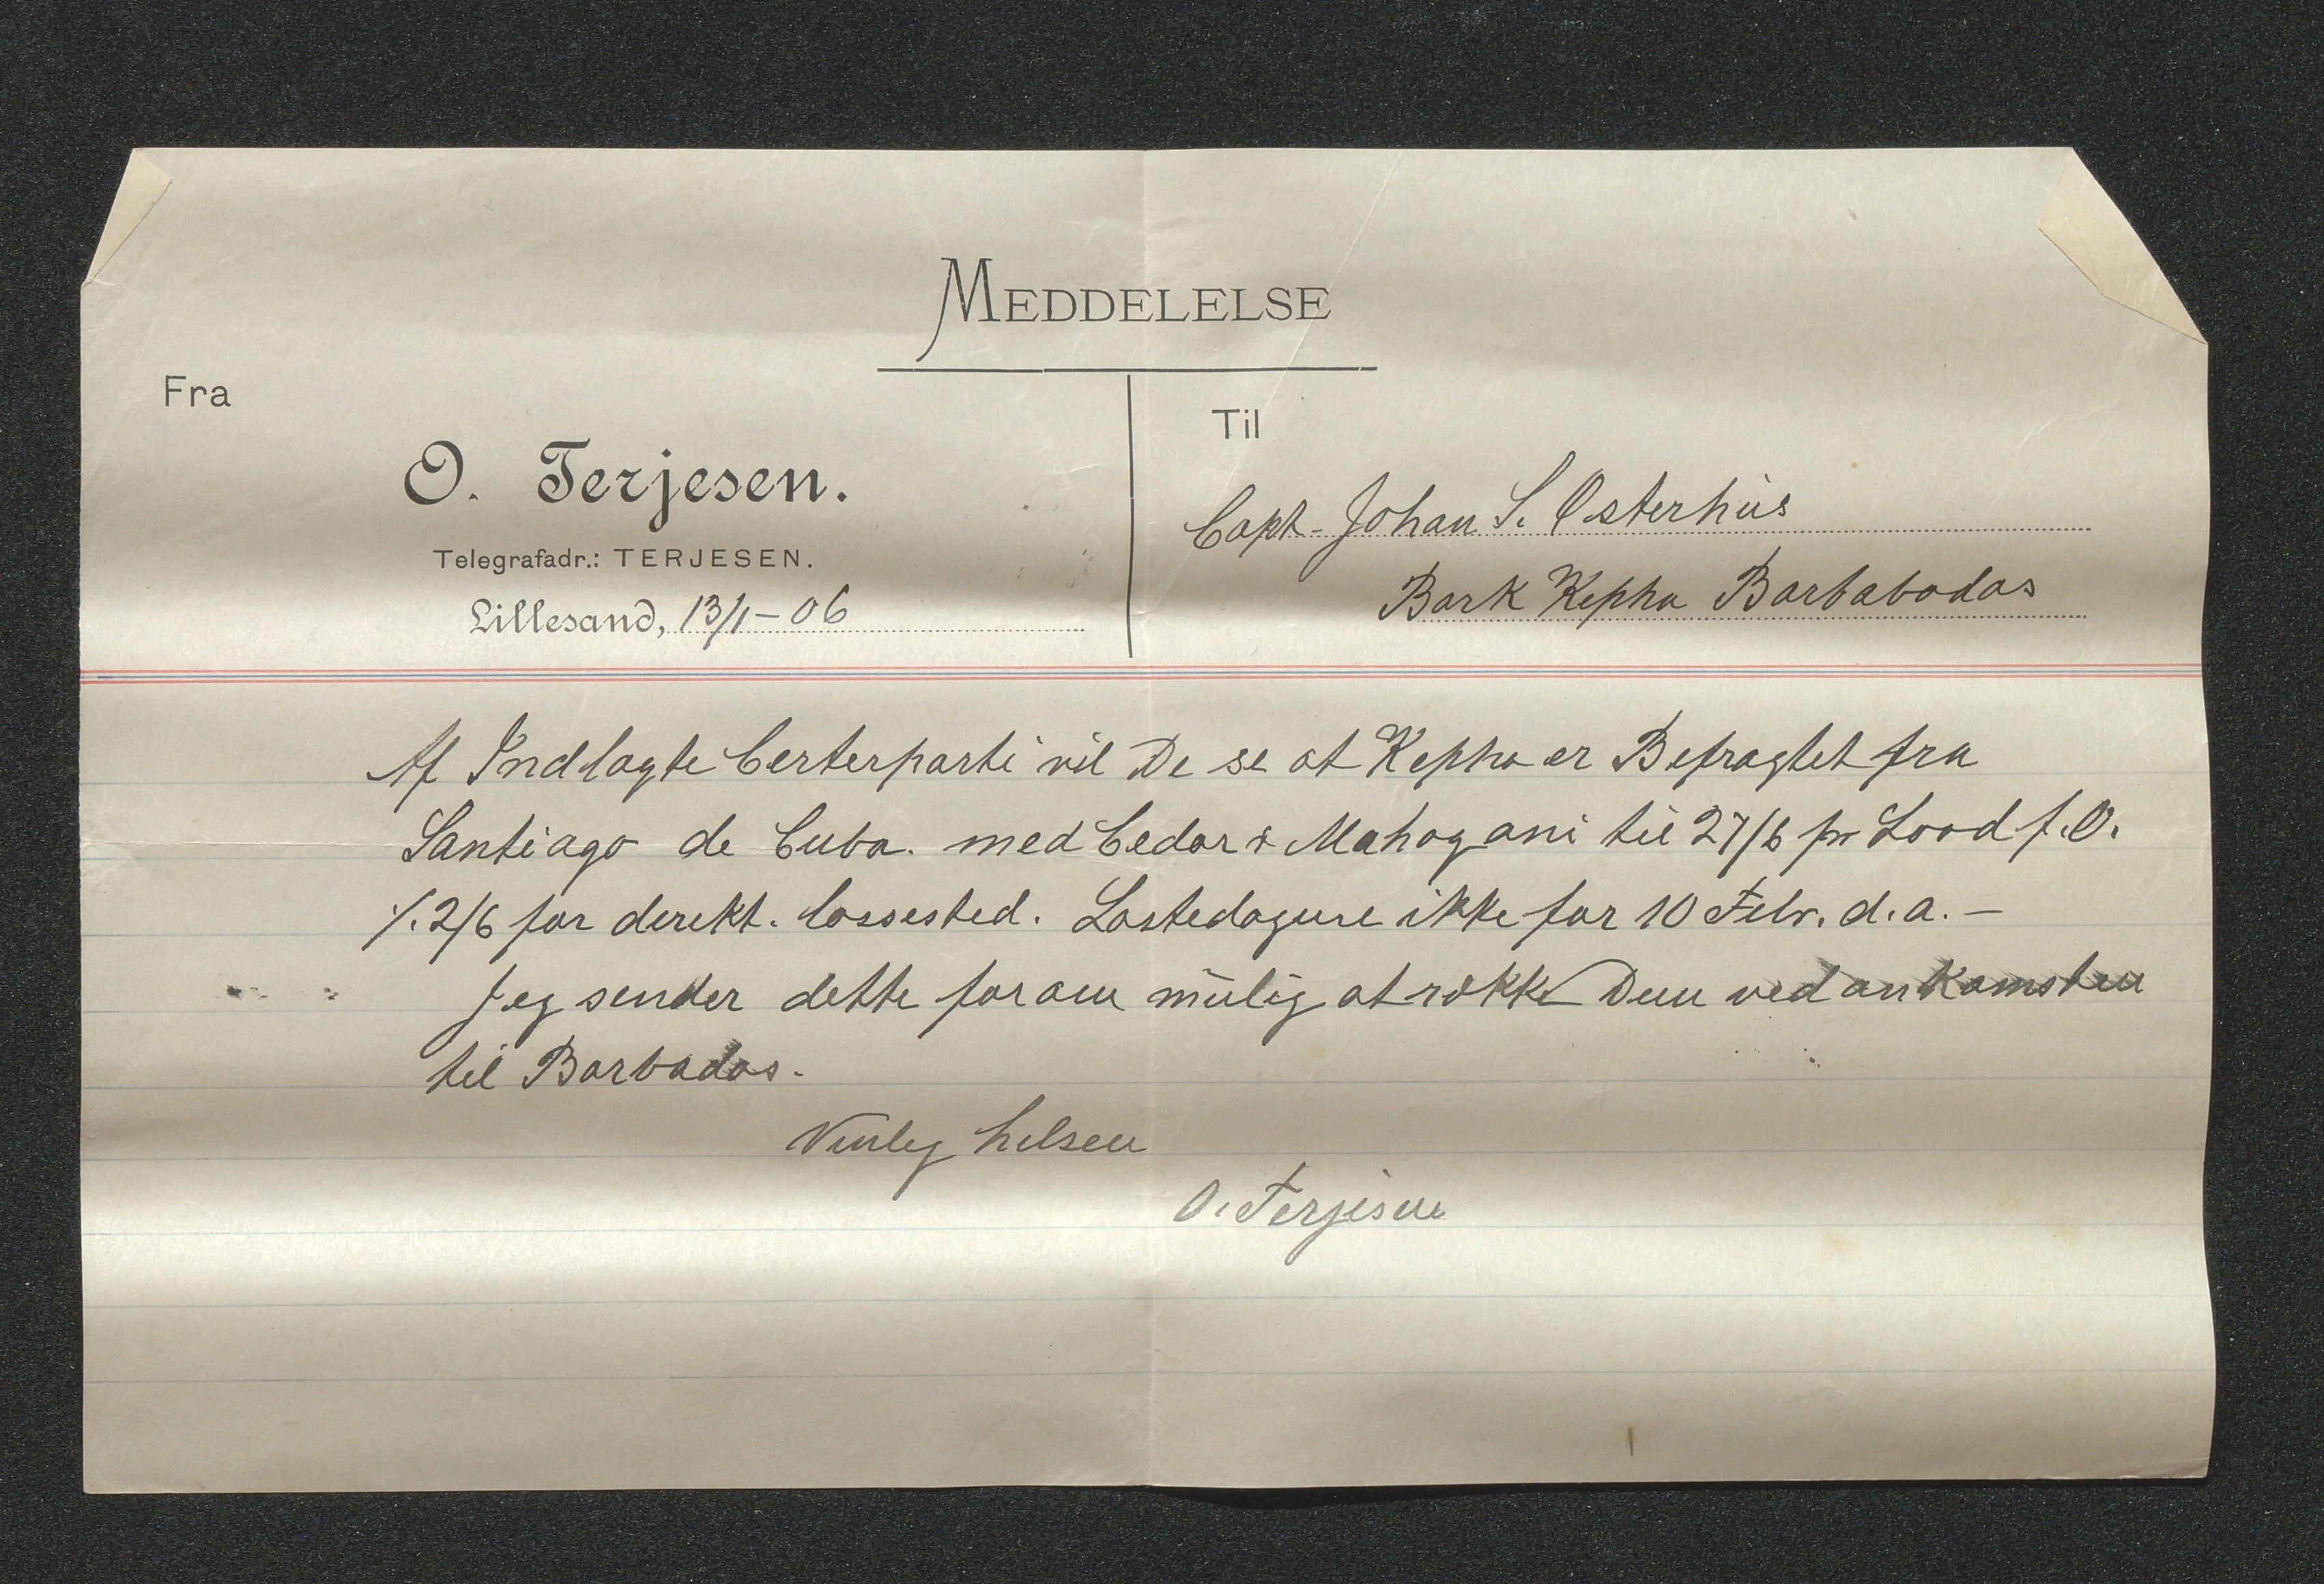 MEDDELELSE
Fra
O. Terjesen.
Telegrafadr.: TERJESEN.
Lillesand, 13/1-06
Til
Capt. Johan S. Osterhus
Bark Kepha Barbabodas
Af Indlagte Certerparti vil De se at Kepha er Befragtet fra
Santiago de Cuba. med Cedar & Mahogani til 27/6 pr Load f.O.
./. 2/6 for direkt. lossested. Lastedagene ikke før 10 Febr. d.a. -
Jeg sender dette for om mulig at række Dem ved ankomsten
til Barbados.
Venlig hilsen
O. Terjesen